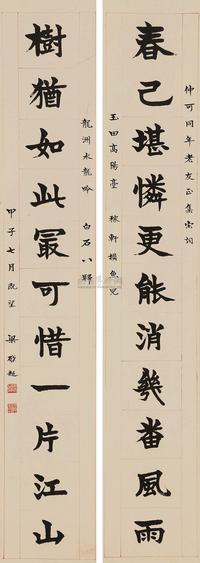 仲可同年老友正集宋词
春已堪憐更能消幾番風雨
玉田高陽臺 稼軒摸魚兒
樹猶如此冣可惜一片江山
龍洲水龍吟 白石八歸
甲子七月既望 梁啟超